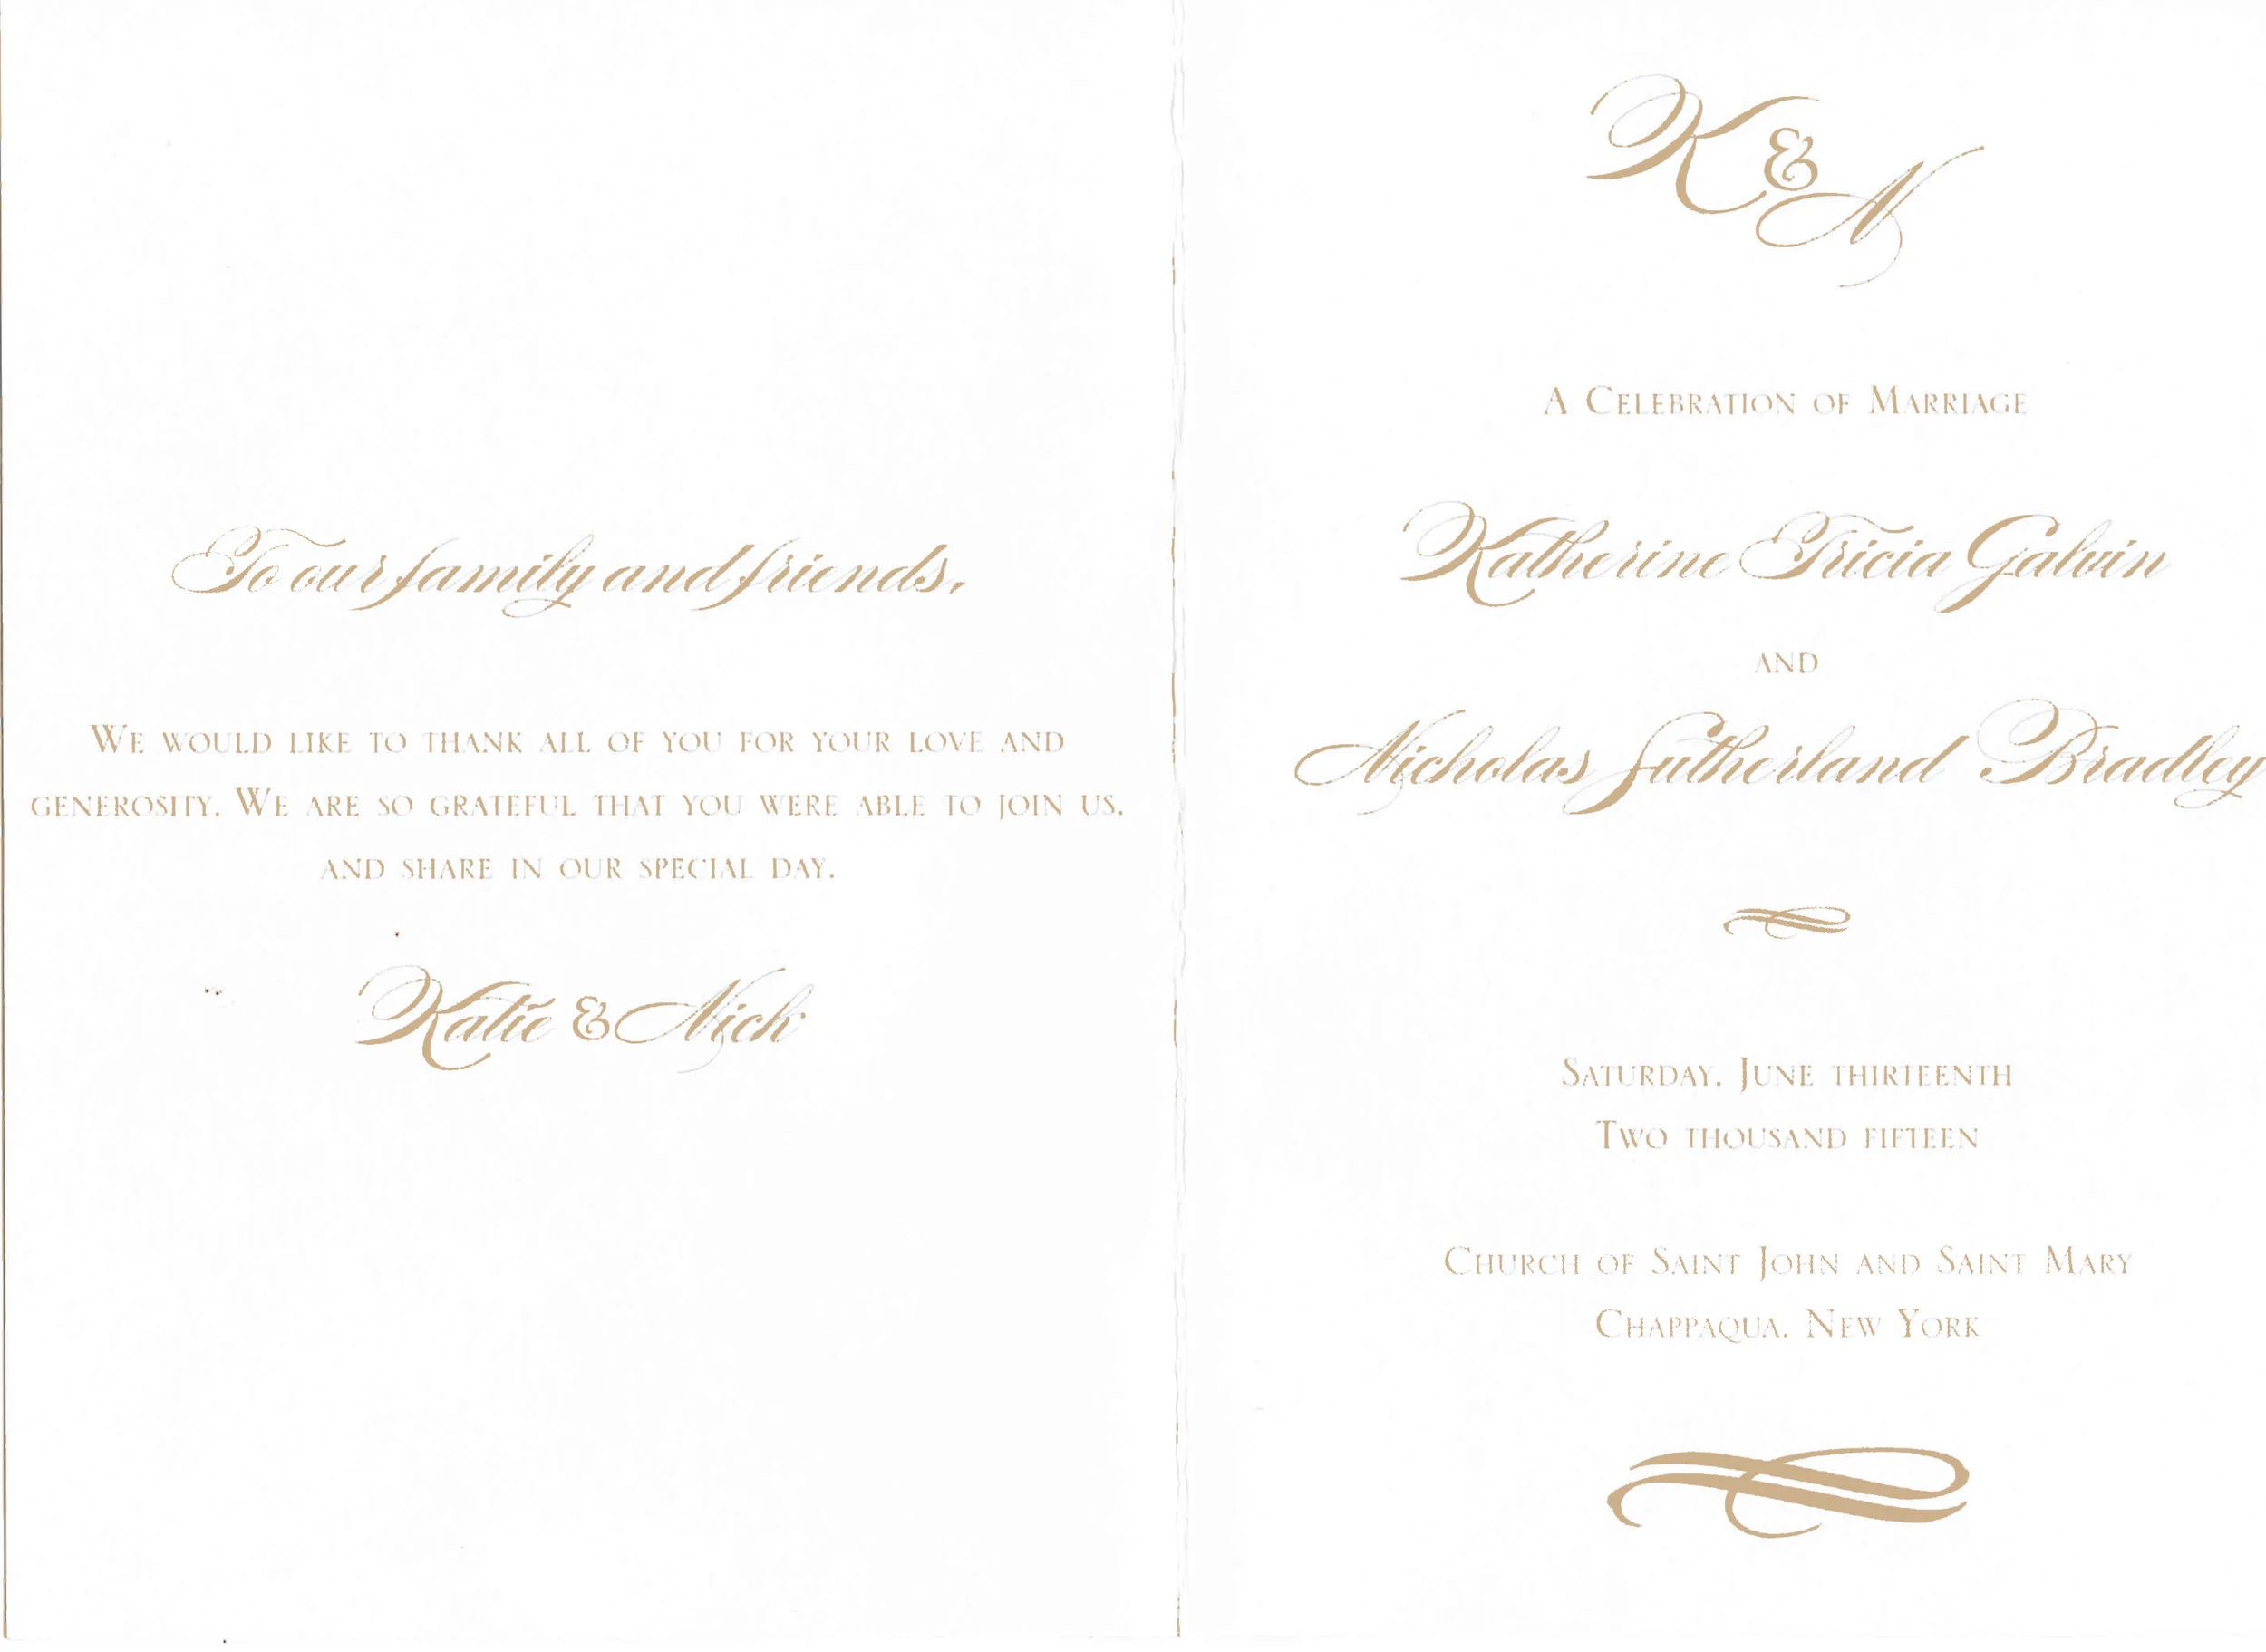 To our family and friends,
We would like to thank all of you for your love and
generosity. We are so grateful that you were able to join us,
and share in our special day.
Katie & Nick
K & N
A Celebration of Marriage
Katherine Tricia Galvin
and
Nicholas Sutherland Bradley
Saturday, June thirteenth
Two thousand fifteen
Church of Saint John and Saint Mary
Chappaqua, New York